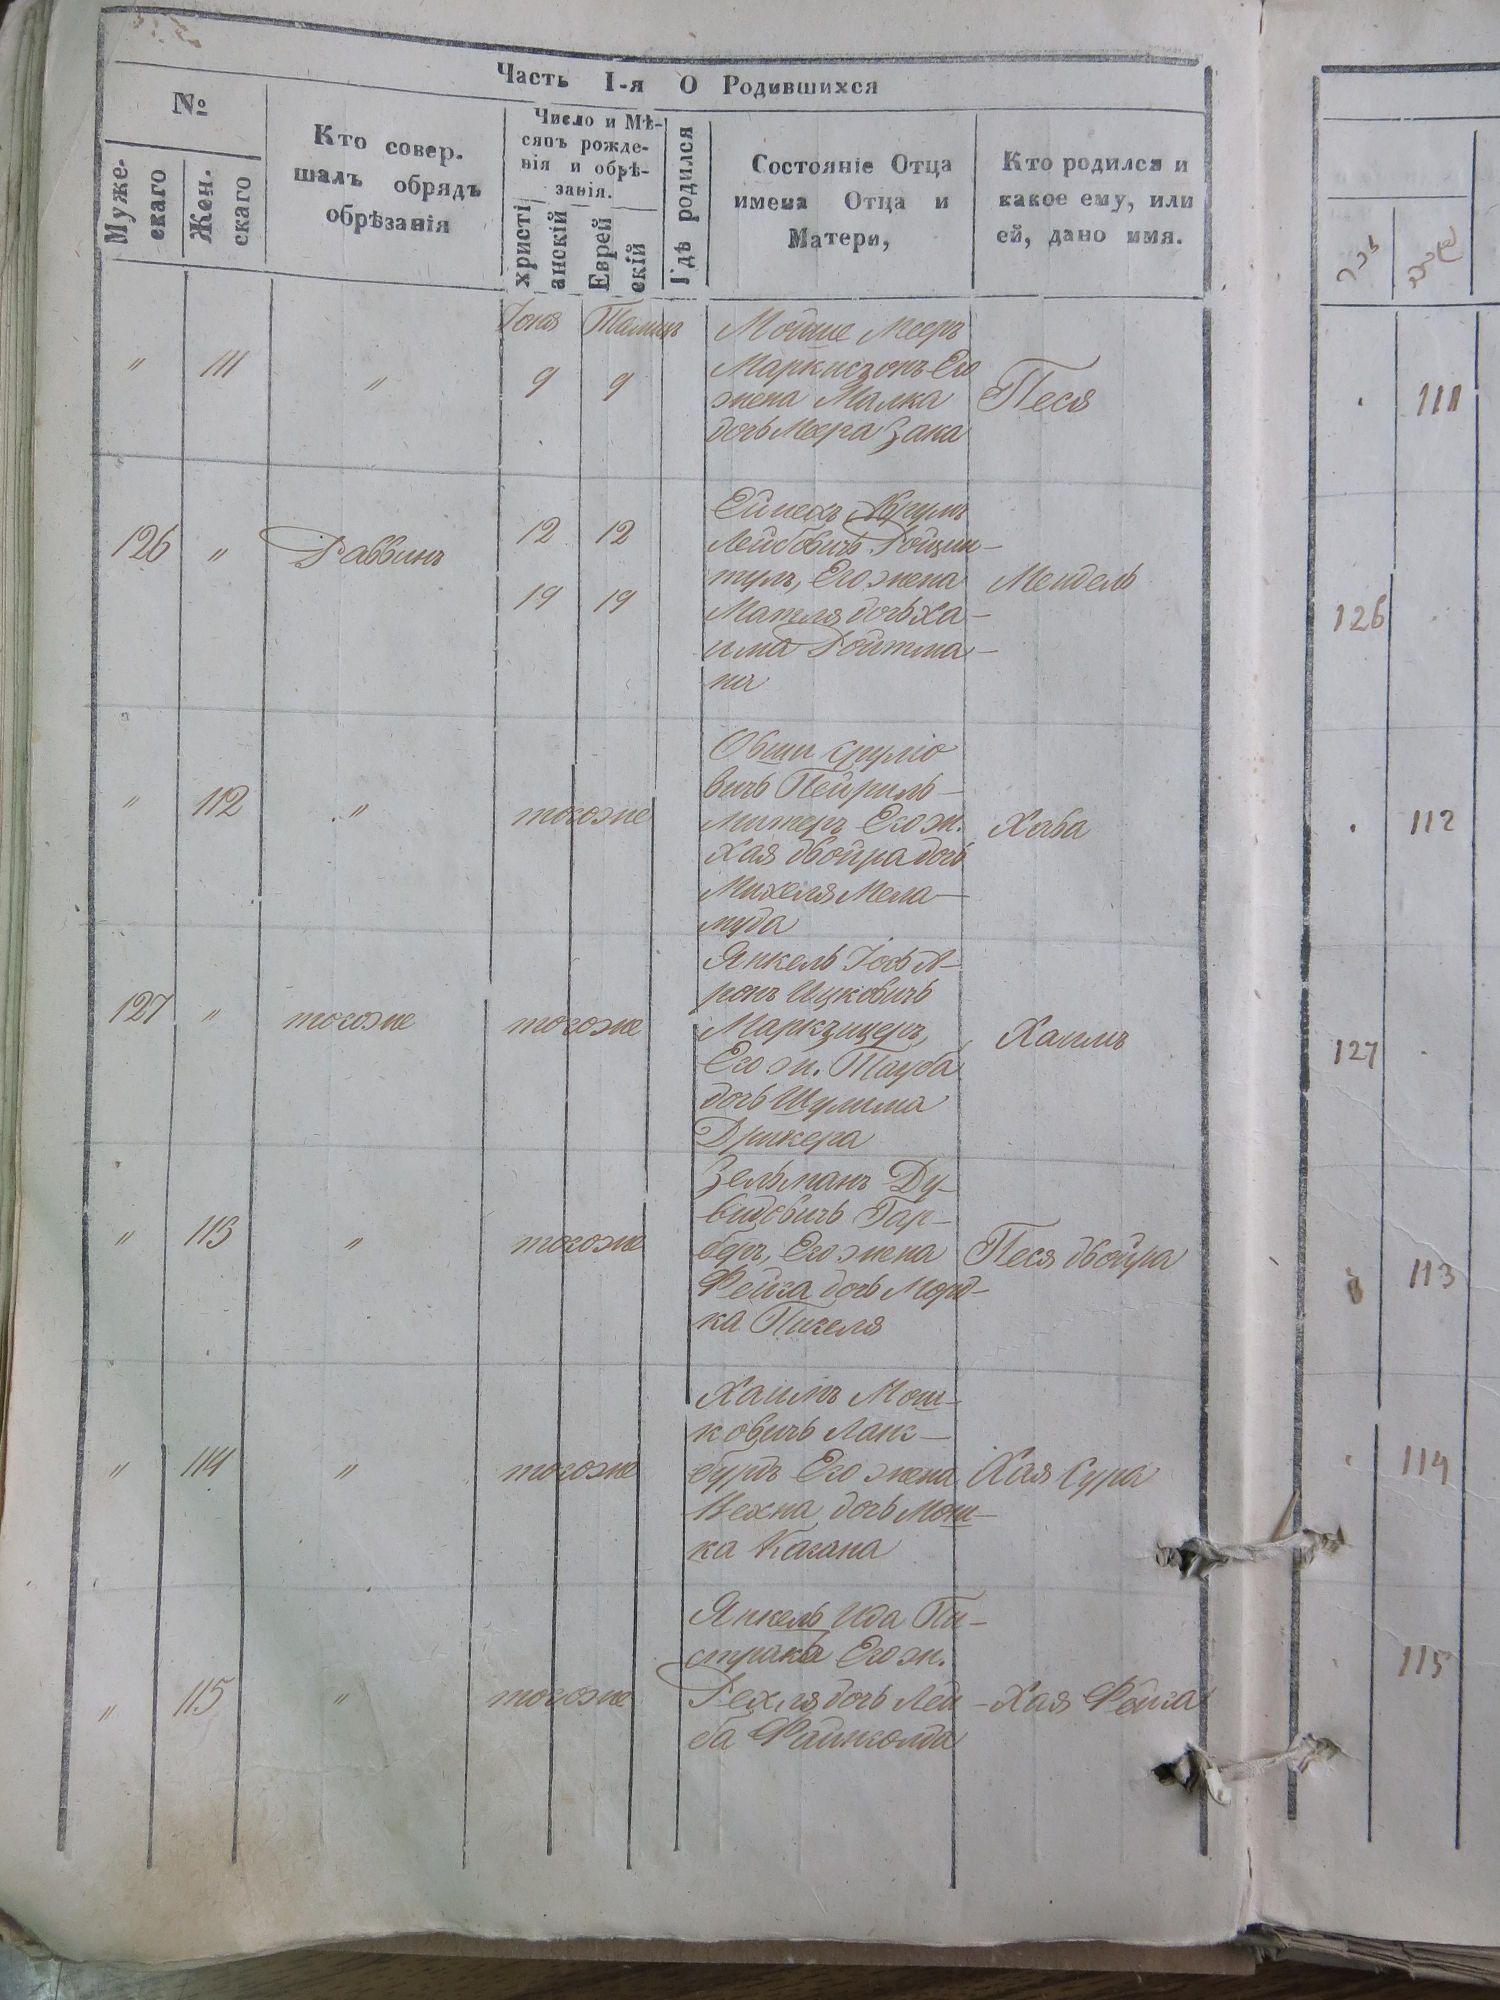 Часть I-я О Родившихся
№
Муже-
скаго
Жен.
скаго
Кто совер.
шалъ обрядъ
обрѣзанія
Число и Мѣ-
сяцъ рожде-
нія и обрѣ-
занія.
христі
анскій
Еврей
скій
Гдѣ родился
Состояніе Отца
имена Отца и
Матери,
Кто родился и
какое ему, или
ей, дано имя.
Іюня Тамизъ
" 111 " 9 9
Мойше Мееръ
Маркисзонъ Его
жена Малка
дочь Меера Зака
Песя
126 " Раввинъ
12 12
19 19
Лейбовичъ Ройцин-
тулъ, Его жена
Матля дочь Ха-
има Ройтма-
на
Мендель
" 112 " тогоже
Овши Сруліо
вичъ Пейриль-
митеръ Его ж.
Хая Двойра дочь
Михеля Мела-
муда
Хава
127 " тогоже тогоже
Янкель Іось А-
ронъ Ицковичъ
Маркзицеръ,
Его ж. Тауба
дочь Шулима
Дрикера
Хаимъ
" 113 " тогоже
Зельманъ Ду-
видовичъ Гар-
беръ, Его жена
Фейга дочь Морд-
ка Пикеля
Песя Двойра
" 114 " тогоже
Хаимъ Мош-
ковичъ Ланс-
бурдъ Его жена
Нехна дочь Мош-
ка Кагана
Хая Сура
" 115 " тогоже
Янкель Ида Пи-
стракъ Его ж.
Рехля дочь Лей-
ба Файнголда
Хая Фейга
זכר
111
126
112
127
113
114
115